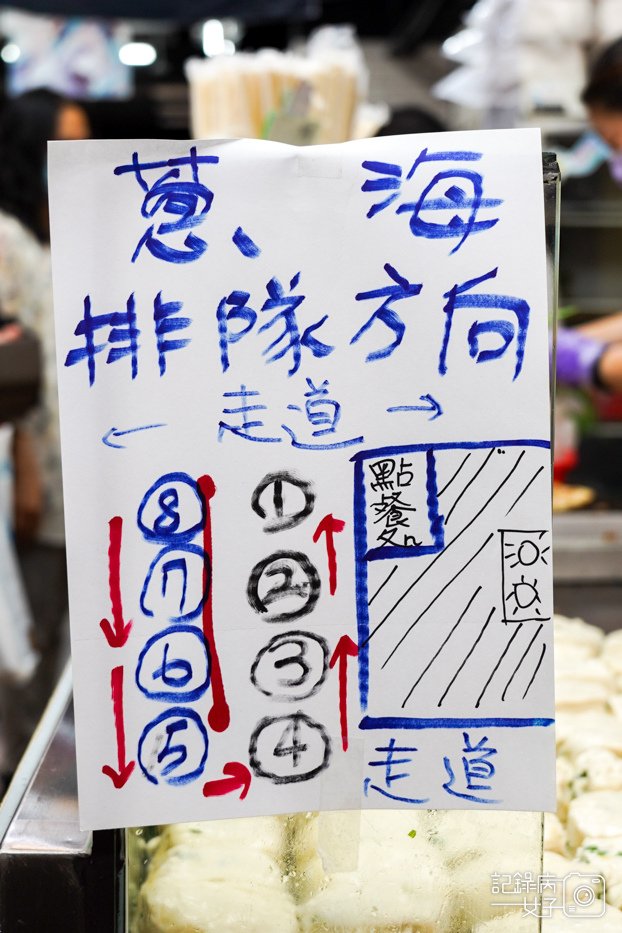 蔥、海
排隊方向
← 走道 →
點
餐
⑧ ①
⑦ ②
⑥ ③
⑤ ④
走道
記錄病
女子